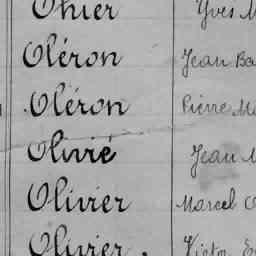 Ohier Yves M
Oléron Jean Ba
Oléron Pierre Ma
Olivié Jean M
Olivier Marcel
Olivier. Victor E